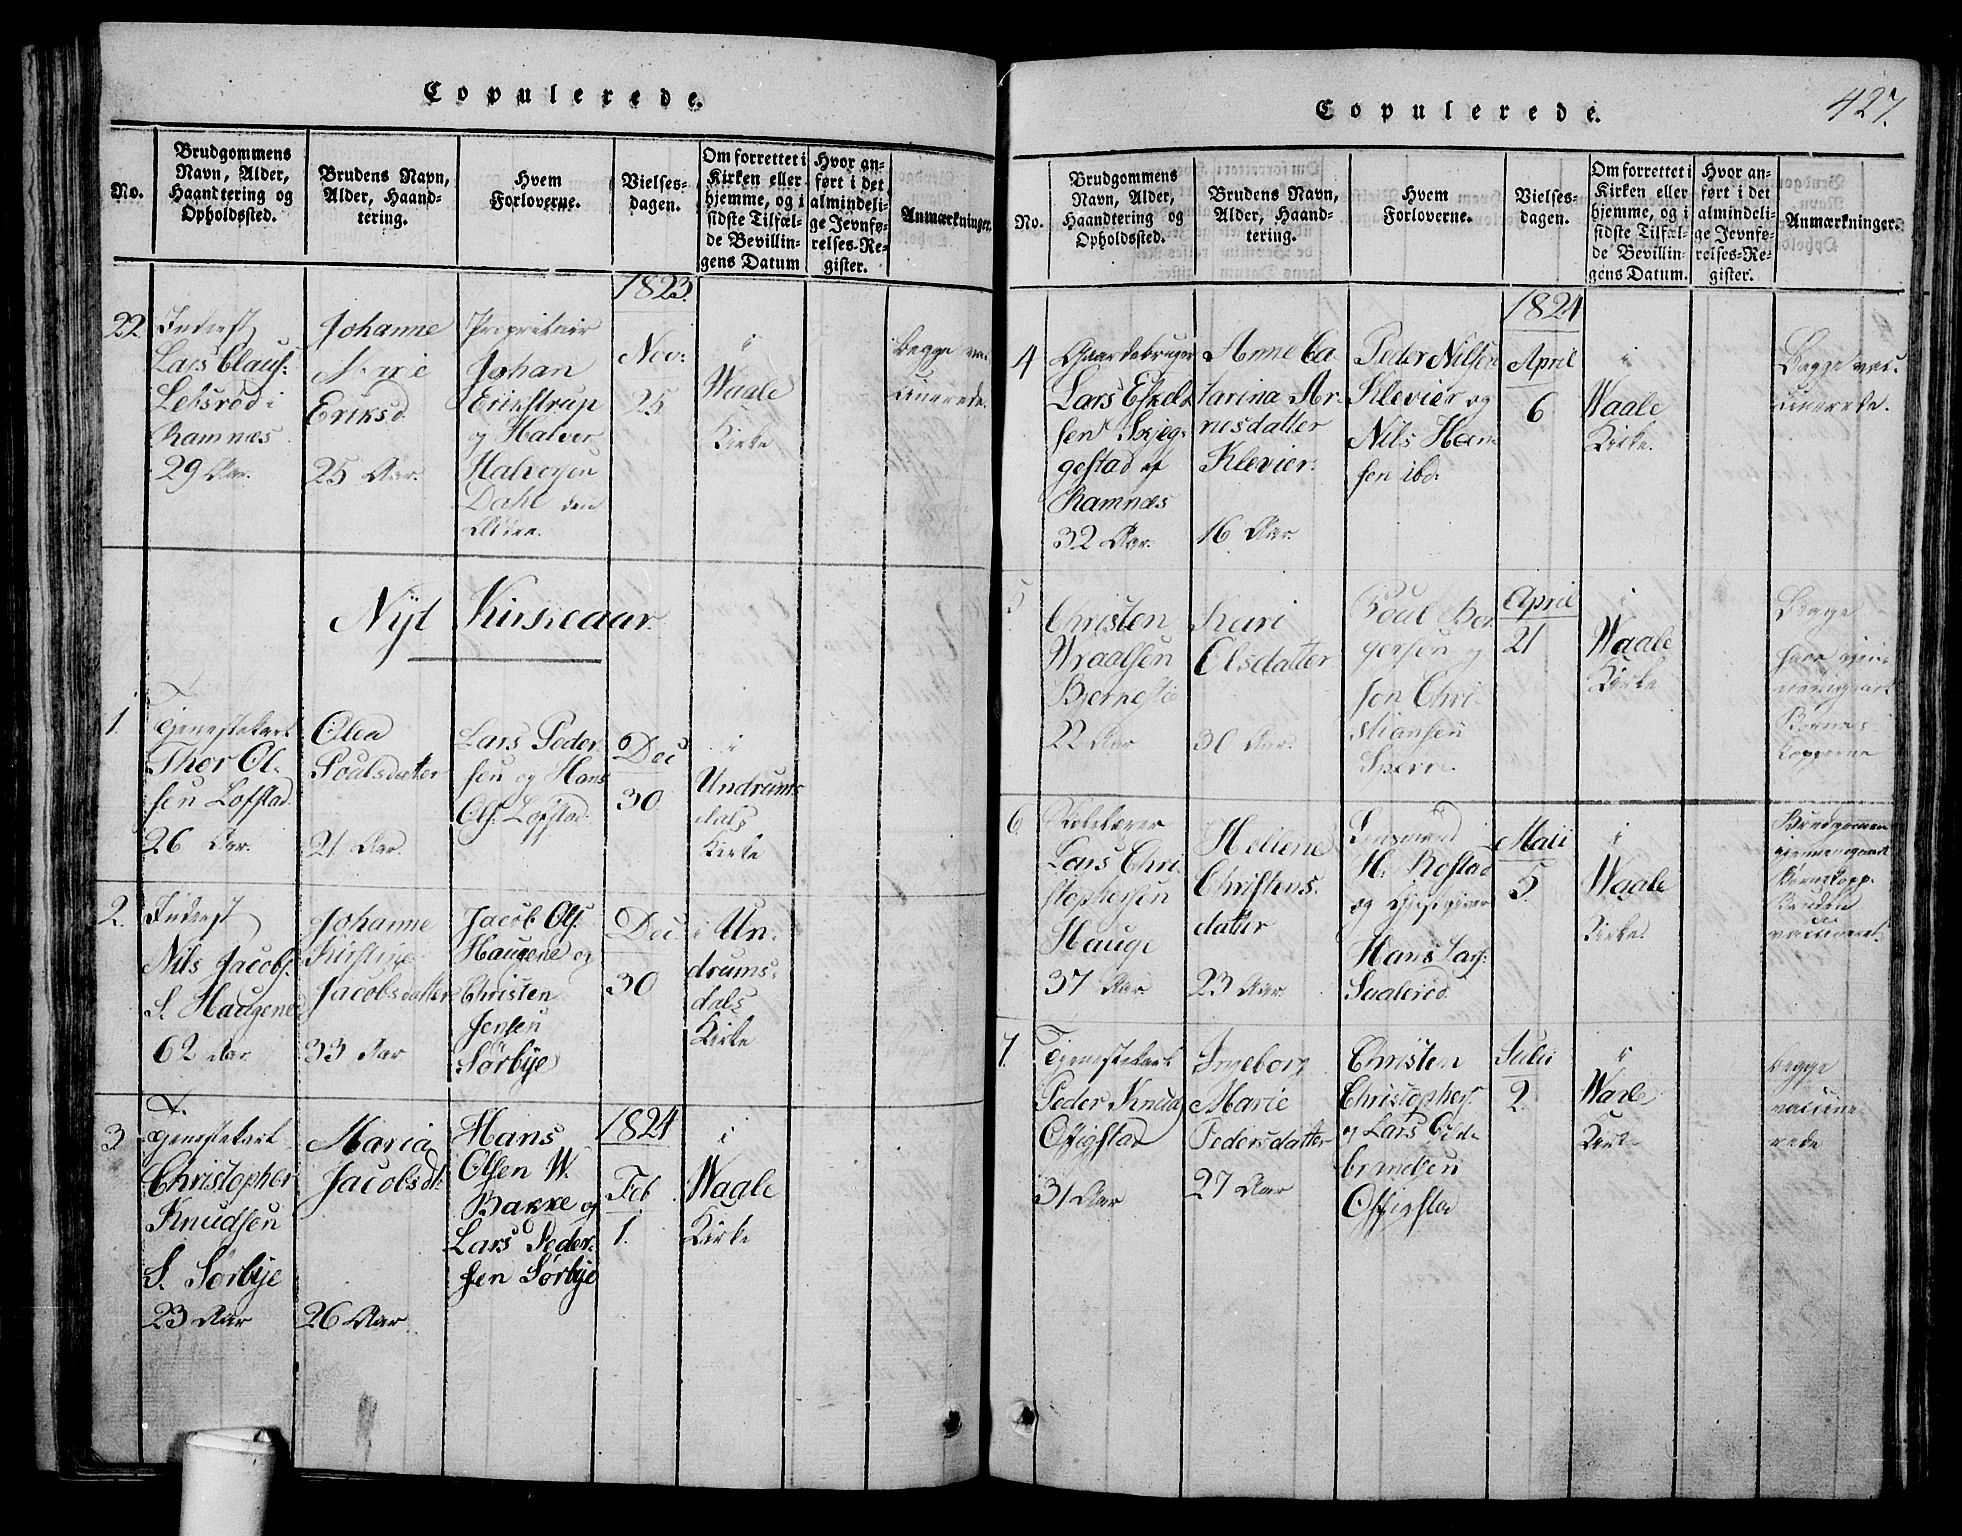 Copulerede.
No.
Brudgommens
Navn, Alder,
Haandtering og
Opholdssted.
Brudens Navn,
Alder, Haand-
tering.
Hvem
Forloverne.
Vielses-
dagen.
Om forrettet i
Kirken eller
hjemme, og i
sidste Tilfæl-
de Bevillin-
gens Datum
Hvor an-
ført i det
almindeli-
ge Jevnfø-
relses-Re-
gister.
Anmærkninger.
22.
Inderst
Lars Clauss:
Lebsrød i
Ramnæs
29 Aar.
Johanne
Marie
Eriksd
25 Aar.
Proprietair
Johan
Erikstrup
og Halver
Halvorsen
Dahl den
Ældre.
1823.
Nov:
25
i
Waale
Kirke
Begge vac-
cinerede.
Nÿt Kirkeaar.
1.
Tjenestekarl
Thor Ol-
sen Lofstad
26 Aar.
Olea
Poulsdatter
21 Aar.
Lars Peder
sen og Hans
Ols. Lofstad.
Dec
30
i
Undrums
dals
Kirke
2.
Inderst
Nils Jacobs.
S. Haugene
62 Aar
Johanne
Kirstine
Jacobsdatter
33 Aar
Jacob Ols.
Haugene og
Christen
Jensen
Sørbye
Dec.
30
i Un-
drums-
dals
Kirke
3
Tjenestekarl
Christopher
Knudsen
S. Sørbye
23 Aar
Maria
Jacobsdr.
26 Aar
Hans
Olsen W.
Bakke og
Lars Peder-
sen Sørbye
1824
Feb.
1.
i
Waale
Kirke
427.
Copulerede.
No.
Brudgommens
Navn, Alder,
Haandtering og
Opholdssted.
Brudens Navn,
Alder, Haand-
tering.
Hvem
Forloverne.
Vielses-
dagen.
Om forrettet i
Kirken eller
hjemme, og i
sidste Tilfæl-
de Bevillin-
gens Datum.
Hvor an-
ført i det
almindeli-
ge Jevnfø-
relses-Re-
gister.
Anmærkninger.
4
Gaardebruger
Lars Eskild
sen Skieg-
gestad af
Ramnæs
32 Aar.
Anne Ca-
tarina Ar-
nesdatter
Klevier.
16 Aar.
Peder Nilsen
Klevier og
Nils Han
sen ibd.
1824
April
6
i
Waale
Kirke.
Begge vac-
cinerede.
5
Christen
Wraalsen
Bjerne
22 Aar
Kari
Olsdatter
30 Aar.
Poul Bor
gersen og
Chri-
stiansen
April
21
i
Waale
Kirke
Begge
have gjen-
nemgaaet
Børne-
kopperne
6
Lars Chri
stophersen
Hauge
37 Aar
Hellene
Christens-
datter
23 Aar.
Lensmand
H. Rostad
og Gjestgiver
Hans Lars:
Sualerød.
Maii
5.
i
Waale
Kirke.
Brudgommen
gjennemgaaet
Børnekopp.
Bruden
vaccineret.
7.
Tjenestekarl
Peder Knuds
Offigstad
31 Aar
Ingeborg
Marie
Pedersdatter
27 Aar
Christen
Christophers.
og Lars Gul-
brandsen
Offigstad
Julii
2.
i
Waale
Kirke
Begge
vaccine-
rede